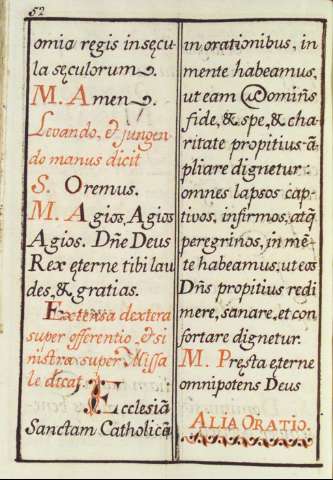 52
omia regis in sęcu
la sęculorum.
M. Amen.
Levando, & jungen
do manus dicit
S. Oremus.
M. Agios, Agios
Agios. Dñe Deus
Rex eterne tibi lau
des, & gratias.
Extensa dextera
super offerentio, & si
nistra super Missa
le dicat.
Ecclesiã
Sanctam Catholicã
in orationibus, in
mente habeamus,
ut eam Dominꝰ
fide, & spe, & cha
ritate propitius ã
pliare dignetur
omnes lapsos cap
tivos, infirmos, atq̃
peregrinos, in mẽ
te habeamus, ut eos
Dñs propitius redi
mere, sanare, et con
fortare dignetur.
M. Pręsta eterne
omnipotens Deus
ALIA ORATIO.